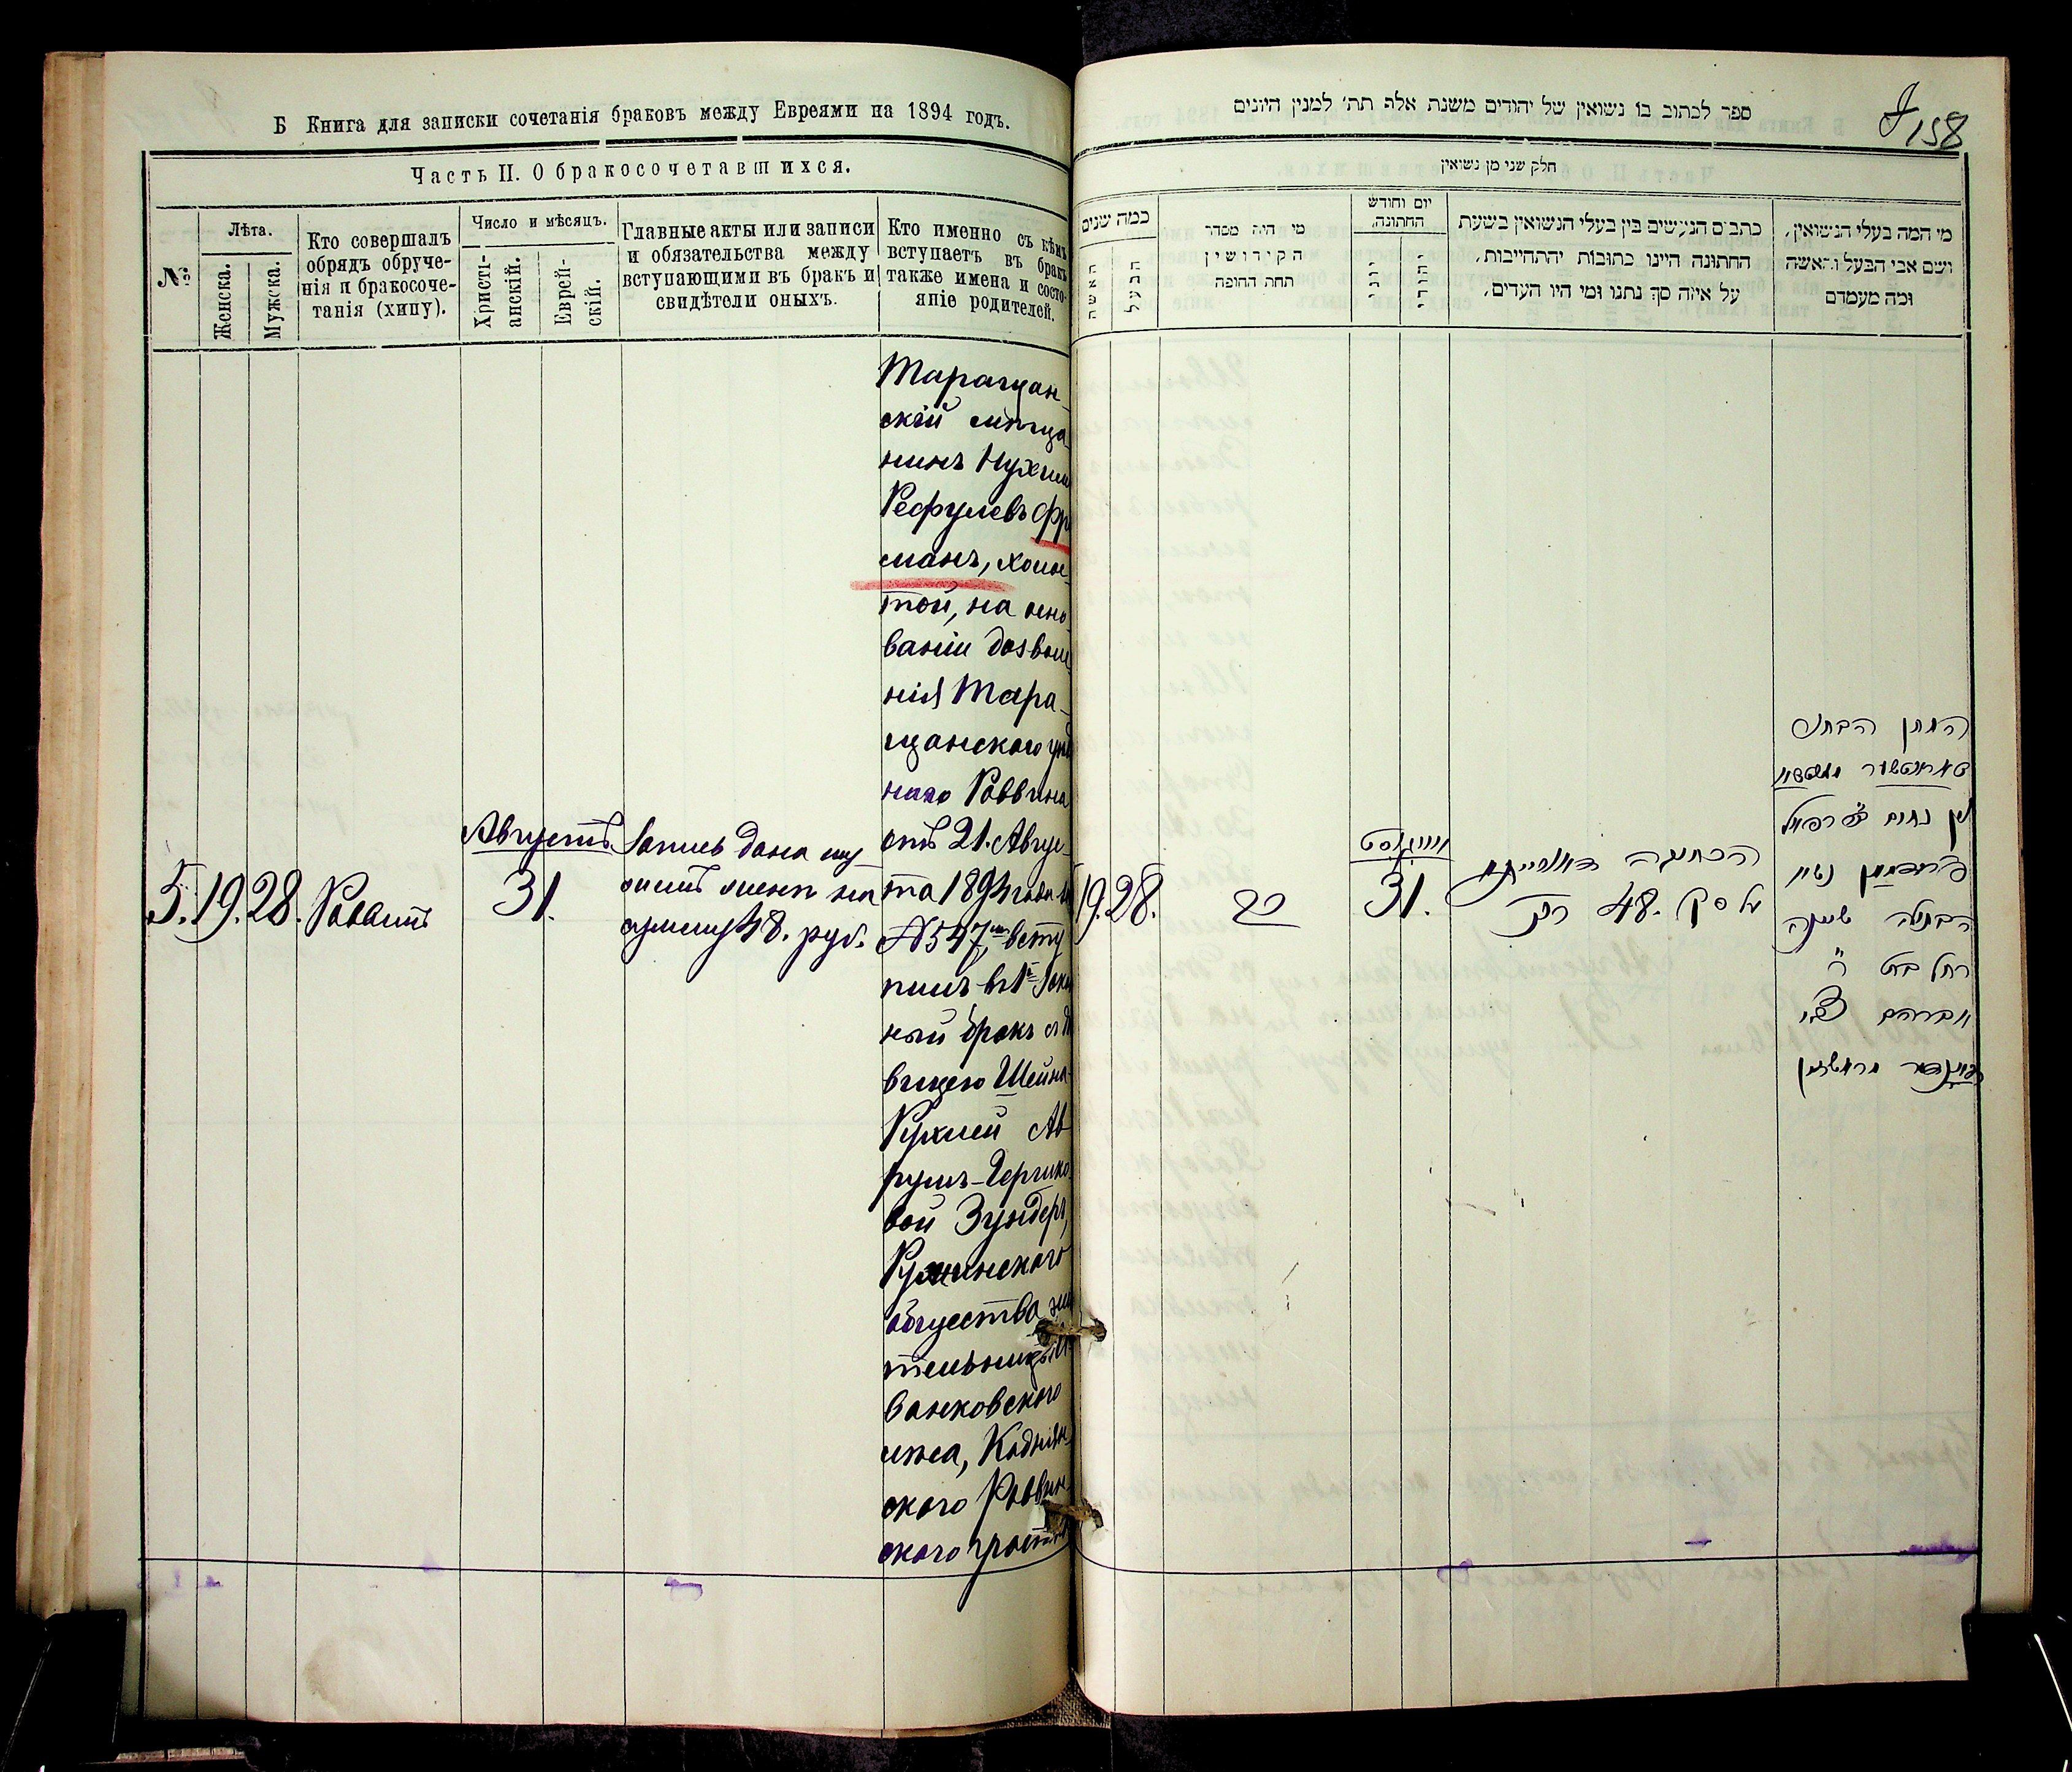 Б Книга для записки сочетанія браковъ между Евреями на 1894 годъ.
Часть II. О бракосочетавшихся.
№
Лѣта.
Женска.
Мужска.
Кто совершалъ
обрядъ обруче-
нія и бракосоче-
танія (хипу).
Число и мѣсяцъ.
Христі-
анскій.
Еврей-
скій.
Главные акты или записи
и обязательства между
вступающими въ бракъ и
свидѣтели оныхъ.
Кто именно съ кѣмъ
вступаетъ въ бракъ
также имена и состо-
яніе родителей.
5.
19.
28.
Раввинъ
Августъ
31.
Запись дана
на
сумму 48. руб.
Таращан-
скій мѣща-
нинъ Нухим
Рефулевъ Фр
манъ, холос-
той, на осно-
ваніи дозволе
нія Тара-
щанского уѣзд
наго Раввина
отъ 21. Авгус-
та 1894 года за
№ 547, всту
пилъ въ 1й закон
ный бракъ съ дѣ
вицею Шейна-
Рухлей Ав
румъ-Гершко
вой Зундеръ,
общества
ванковского
Раввин
ского
ספר לכתוב בו נשואין של יהודים משנת אלף תת׳ למנין היונים
158
חלק שני מן נשואין
כמה שנים
האשה
הבעל
מי היה מסדר
הקידושין
תחת החופה
יום וחודש
החתונה,
כתבים הנעשים בין בעלי הנשואין בשעת
החתונה היינו כתובות יהתחייבות,
על איזה סך נתנו ומי היו העדים,
מי המה בעלי הנשואין,
ושם אבי הבעל והאשה
ומה מעמדם
19.
28.
אווגוסט
31.
הכתובה דאורייתא
על סך 48. רק
החתן הבחור
נחום
הבתולה שיינה
רחל בת ר׳
אברהם צבי